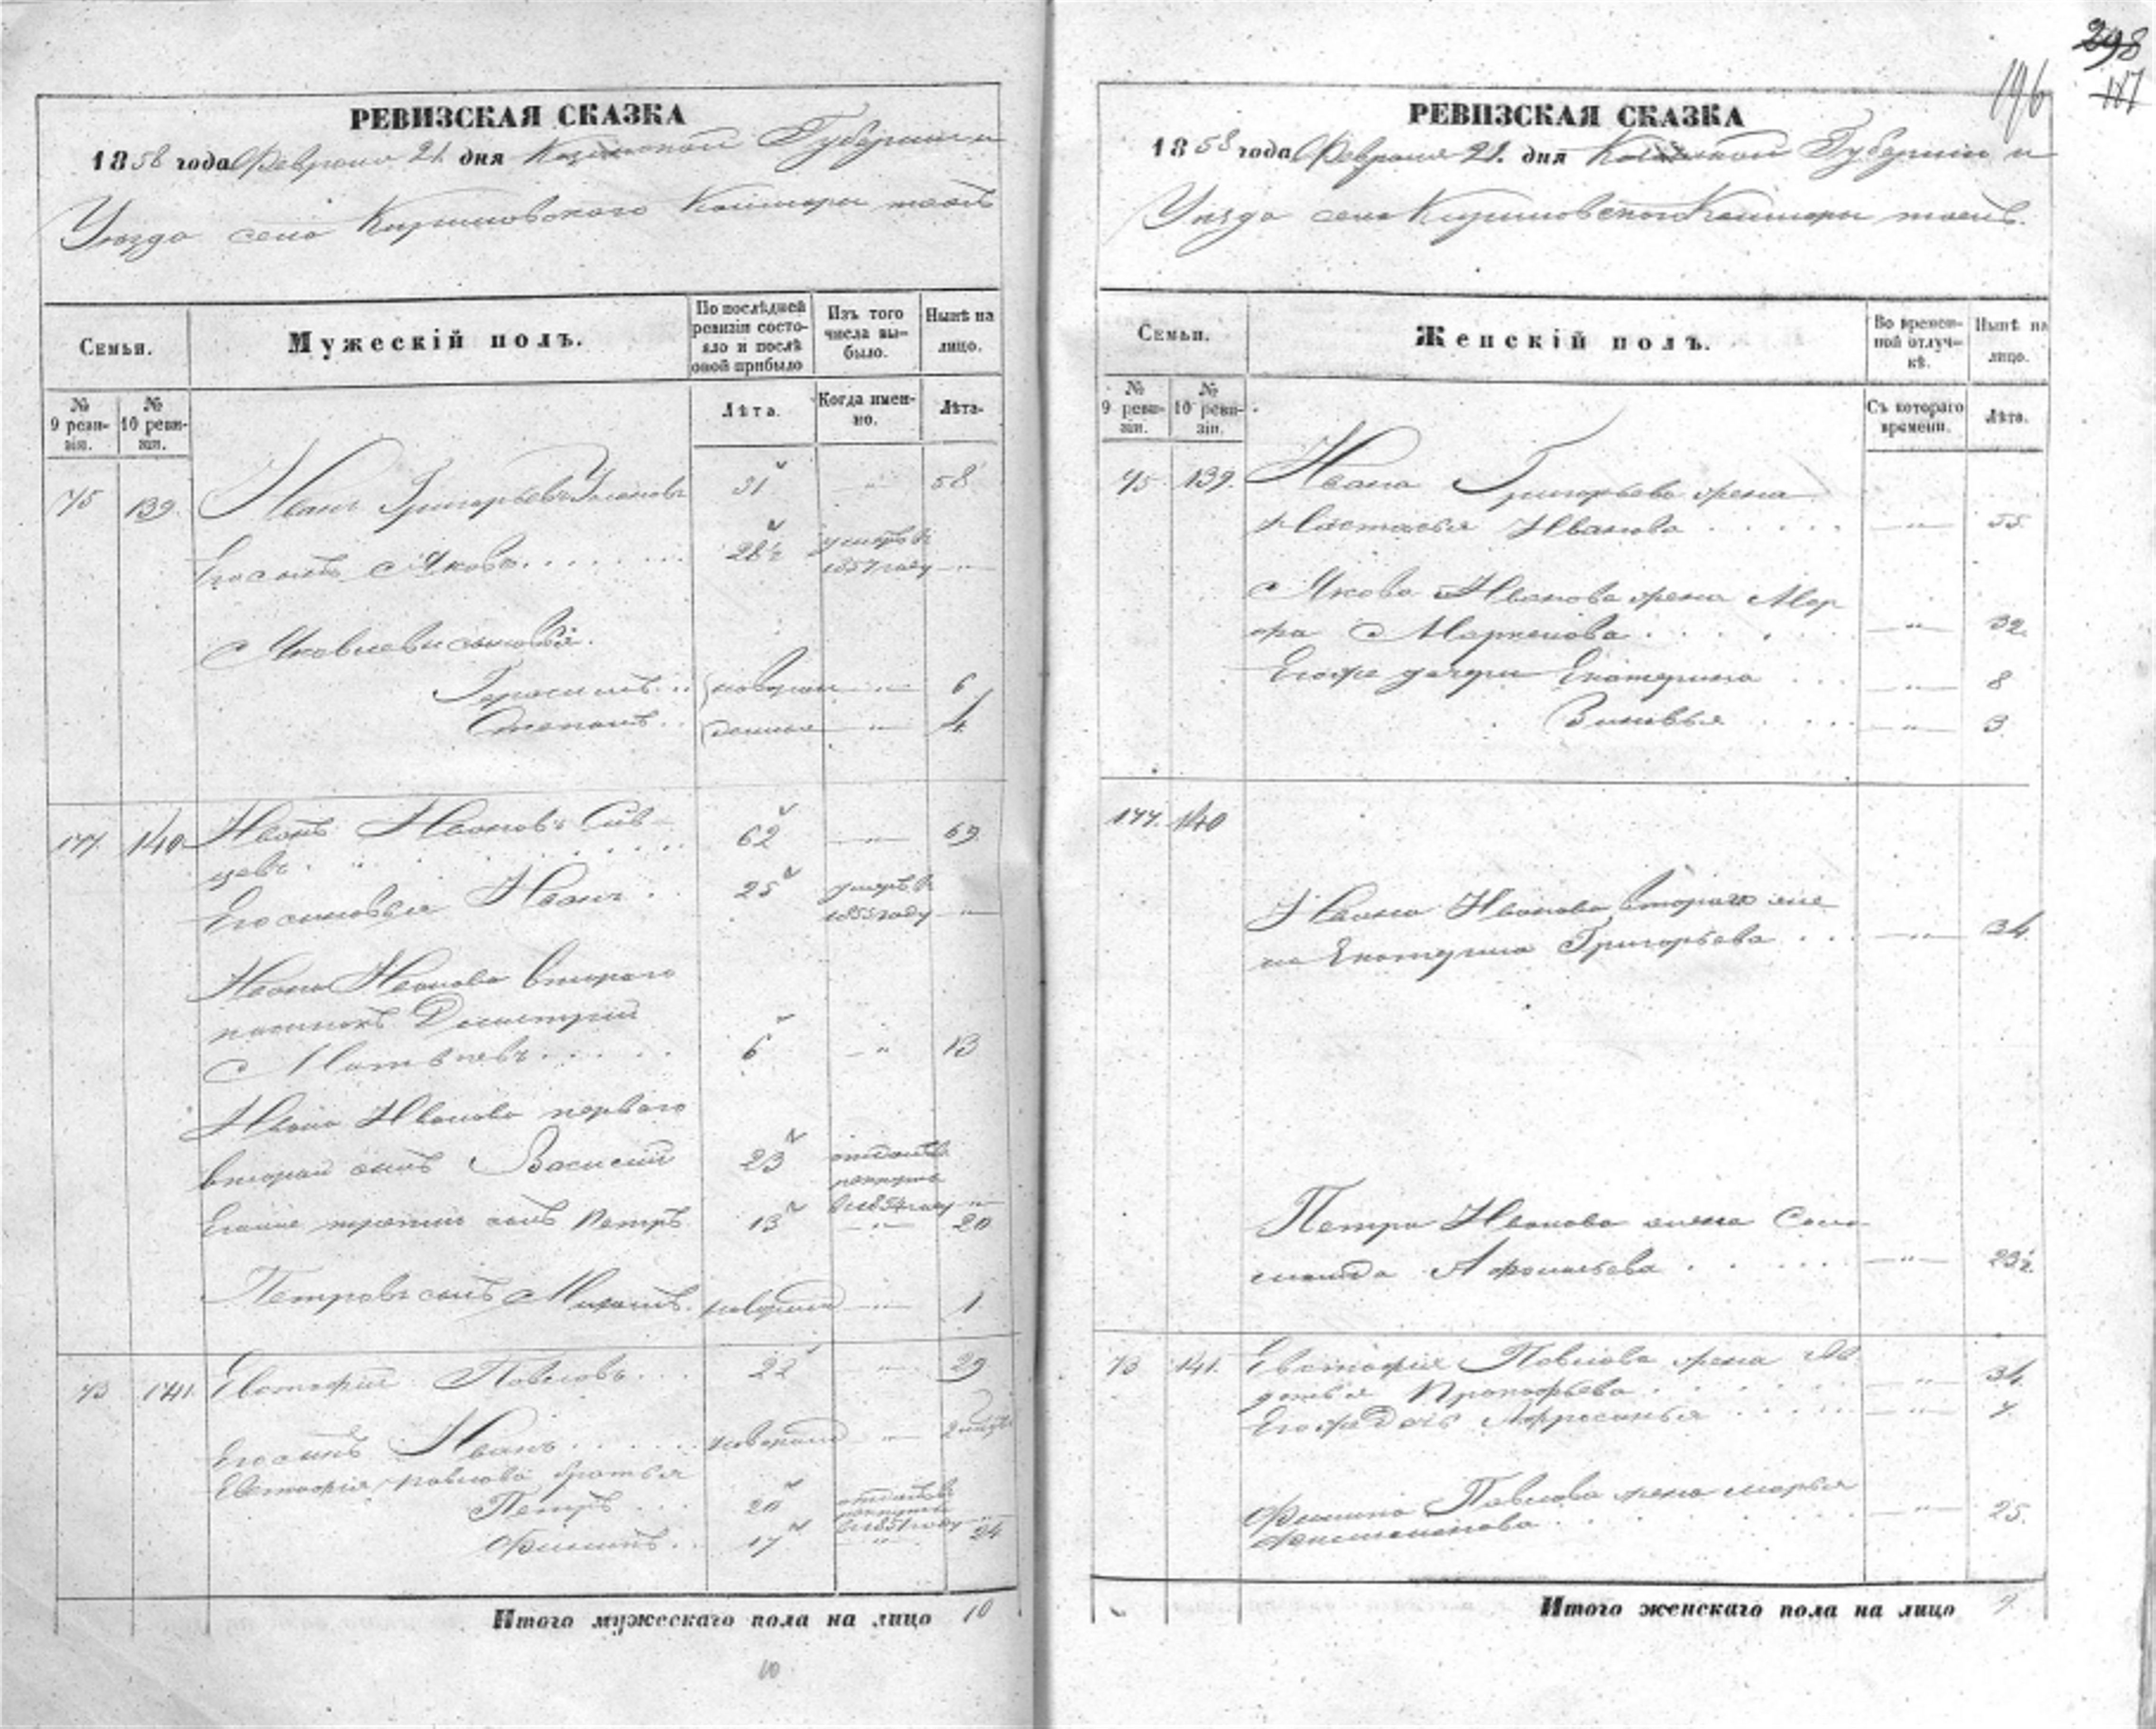 РЕВИЗСКАЯ СКАЗКА
1858 года Февраля 21. дня Казанской Губернии и
Уезда села
Семьи.
Мужескій полъ.
По послѣдней ревизіи состо-
яло и послѣ
оной прибыло
Изъ того
числа вы-
было.
Нынѣ на
лицо.
№
9 реви-
зіи.
№
10 реви-
зіи.
Лѣта.
Когда имен-
но.
Лѣта.
75 139. Иванъ Григорьевъ 31 " 58
Его сынъ Яковъ 28½ умеръ въ
1857 году "
Яковлевы сыновья.
Герасимъ новорож " 6
Степанъ денные " 4
177. 140 Иванъ Ивановъ 62 " 69.
Его сыновья Иванъ 25 умеръ въ
1855 году "
Ивана Иванова втораго
пасынокъ Дмитрий
Матвѣевъ 6 " 13
Ивана Иванова перваго
второй сынъ Василий 23 отданъ въ
рекруты
в 1854 году "
Его же третий сынъ Петръ 13 " 20
Петровъ сынъ новорож " 1.
73 141. Евстафий Павловъ 22 " 29
Его сынъ Иванъ новорож "
Евстафия Павлова братья
Петръ 20 отданъ въ
рекруты
в 1854 году "
Филипъ 17 " 24
Итого мужескаго пола на лицо 10
10
298
117
196
РЕВИЗСКАЯ СКАЗКА
1858 года Февраля 21. дня Казанской Губернии и
Уезда села
Семьи.
Женскій полъ.
Во времен-
ной отлуч-
кѣ.
Нынѣ на
лицо.
№
9 реви-
зіи.
№
10 реви-
зіи.
Съ котораго
времени.
Лѣта.
75. 139. Ивана Григорьева жена
Настасья Иванова " 55.
Якова Иванова жена Мар
" 32.
Его же дочери Екатерина " 8
Зиновья " 3.
177. 140
Ивана Иванова втораго же
на Екатерина Григорьева " 34.
Петра Иванова жена Соло
Афонасьева " 23½
73 141. Евстафия Павлова жена Ав
дотья Прокофьева " 34.
Его же дочь Афросинья " 7.
Филипа Павлова жена Марья
" 25.
Итого женскаго пола на лицо 9.